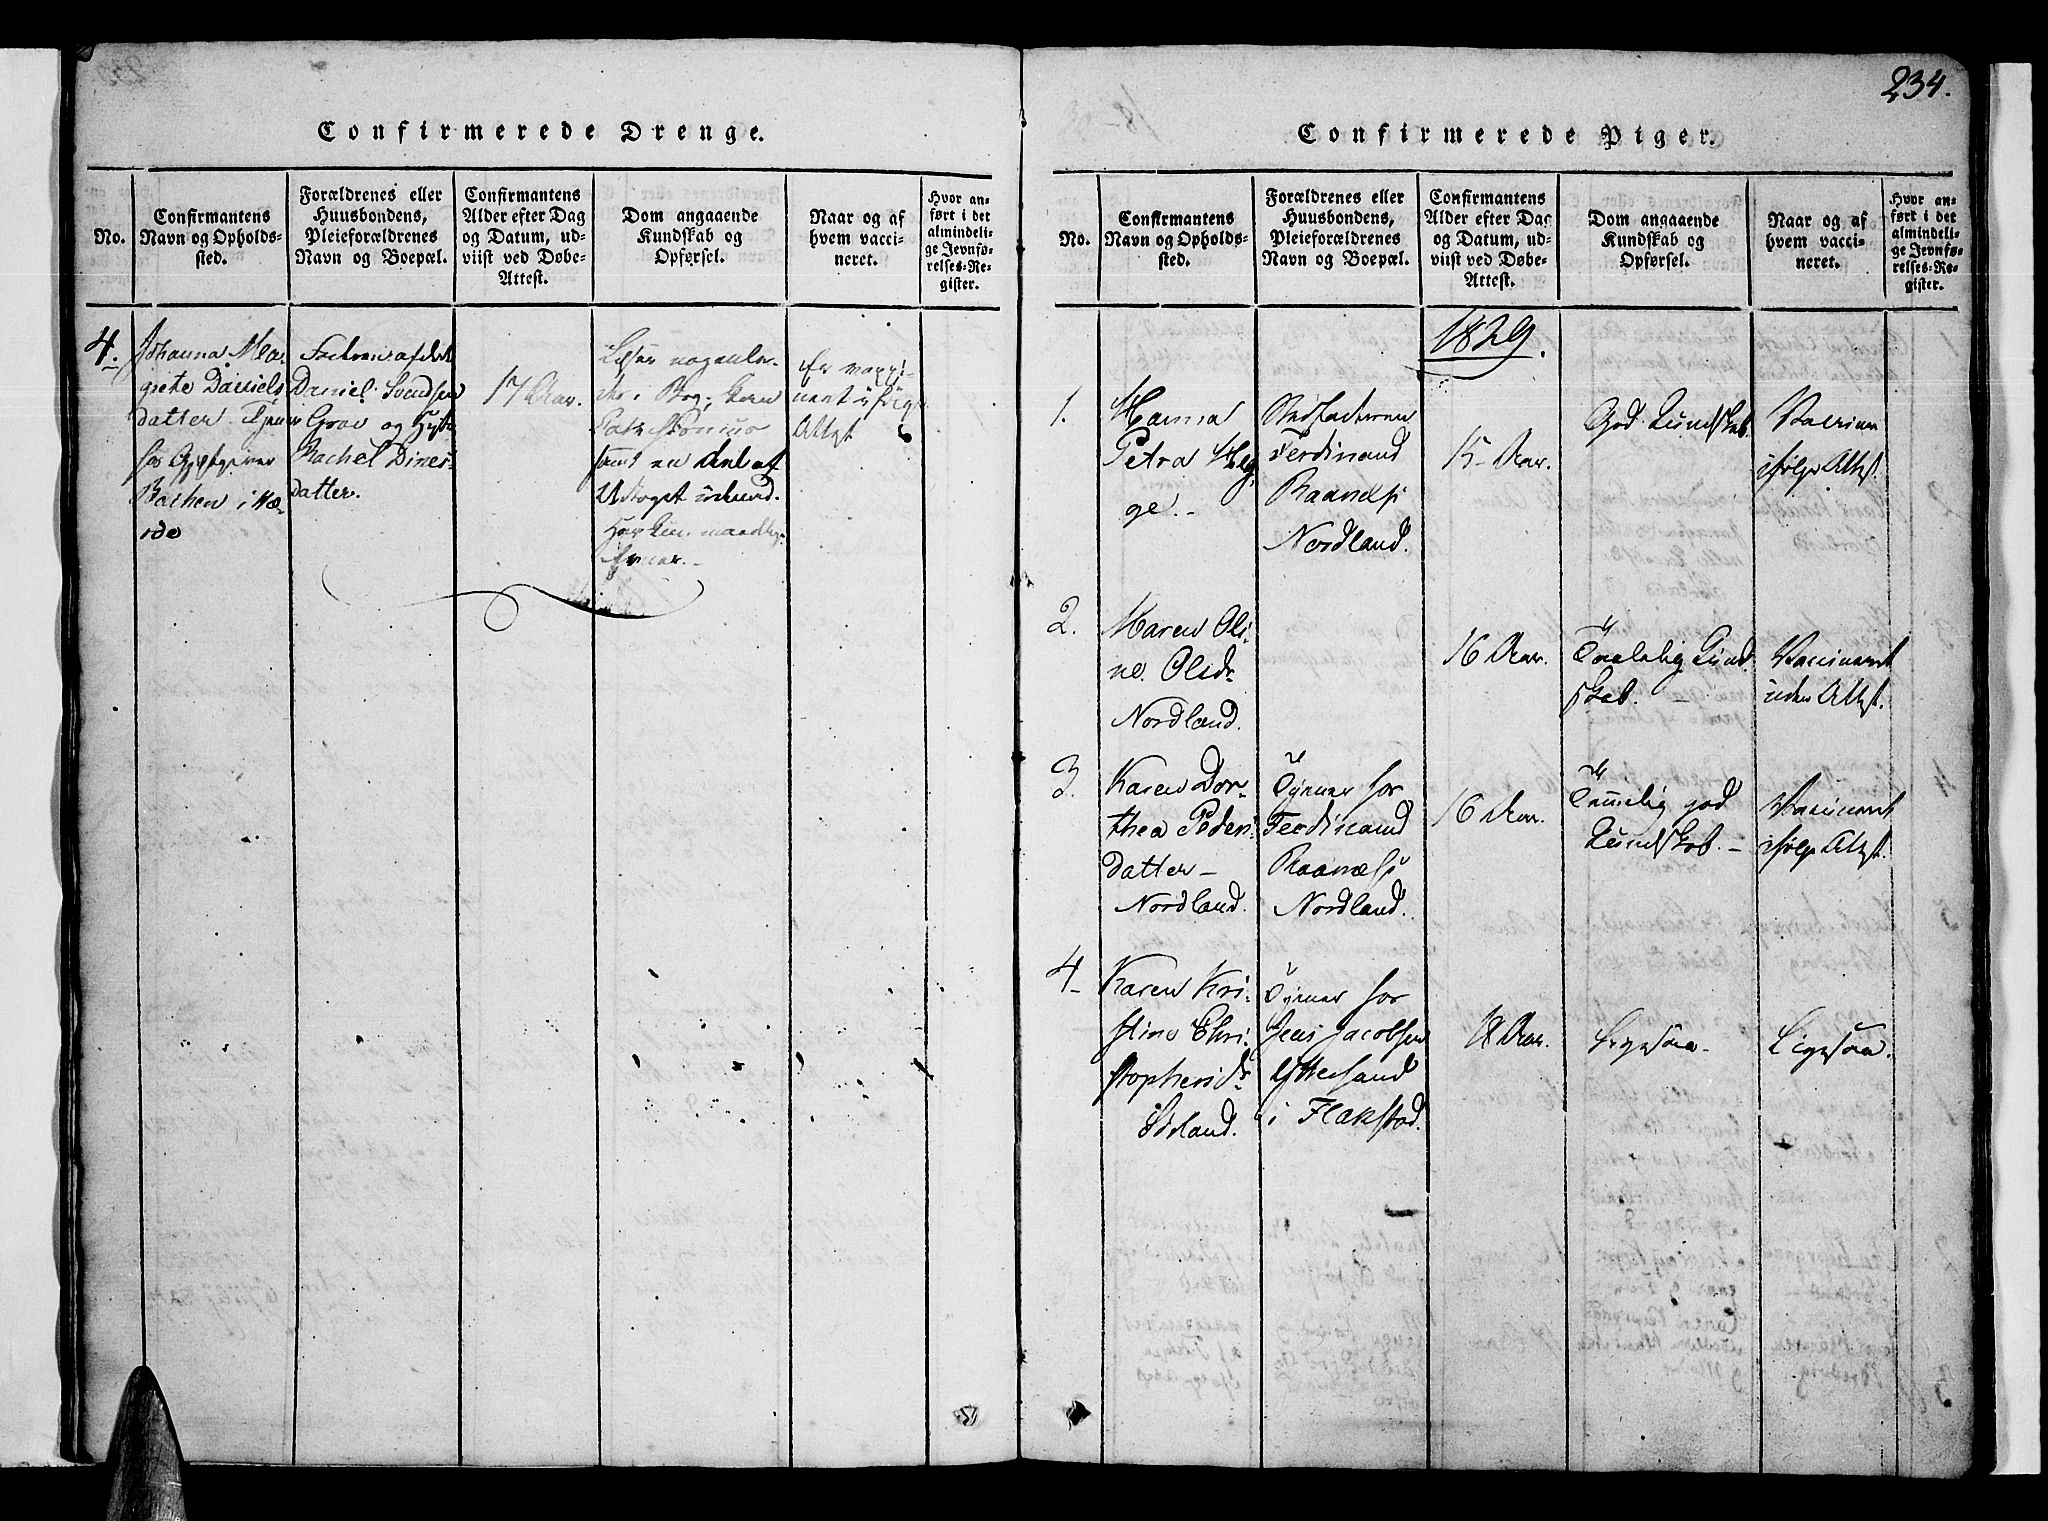 234.
Confirmerede Drenge.
No.
Confirmantens
Navn og Opholds-
sted.
Forældrenes eller
Huusbondens,
Pleieforældrenes
Navn og Boepæl.
Confirmantens
Alder efter Dag
og Datum, ud-
viist ved Døbe-
Attest.
Dom angaaende
Kundskab og
Opførsel.
Naar og af
hvem vacci-
neret.
Hvor an-
ført i det
almindeli-
ge Jevnfø-
relses-Re-
gister.
4.
Johanna Mar-
grete Daniels
datter
for Gjestgiver
Bachen i Væ-
rø
Faderen afdøde
Daniel Svendsen
Grav og
Rachel Dines-
datter.
17 Aar.
Læser nogenle-
des i Bog; kan
samt en deel af
Udtoget udenad.
Er vacci-
neret
Attest
Confirmerede Piger.
No.
Confirmantens
Navn og Opholds-
sted.
Forældrenes eller
Huusbondens,
Pleieforældrenes
Navn og Boepæl.
Confirmantens
Alder efter Dag
og Datum, ud-
viist ved Døbe-
Attest.
Dom angaaende
Kundskab og
Opførsel.
Naar og af
hvem vacci-
neret.
Hvor an-
ført i det
almindeli-
ge Jevnfø-
relses-Re-
gister.
1829.
1.
Hanna
Petra Hey-
ge.-
Stedfaderen
Ferdinand
Raanæs i
Nordland.
15 Aar.
God Kundskab.
Vaccineret
ifølge Attest.
2.
Maren Oli-
ne Olsdr
Nordland.
16 Aar.
Taalelig Kund-
skab. -
Vaccineret
uden Attest.
3.
Karen Dor-
thea Peders-
datter -
Nordland.
Tjener for
Ferdinand
Raanæs i
Nordland.
16 Aar.
Temmelig god
Kundskab. -
Vaccineret
ifølge Attest.
4
Karen Kri-
stine Chri-
stophersdr
Sørland.
Tjener for
Jens Jacobsen
Yttersand
i Flakstad.
18 Aar.
Ligesaa.
Ligesaa.